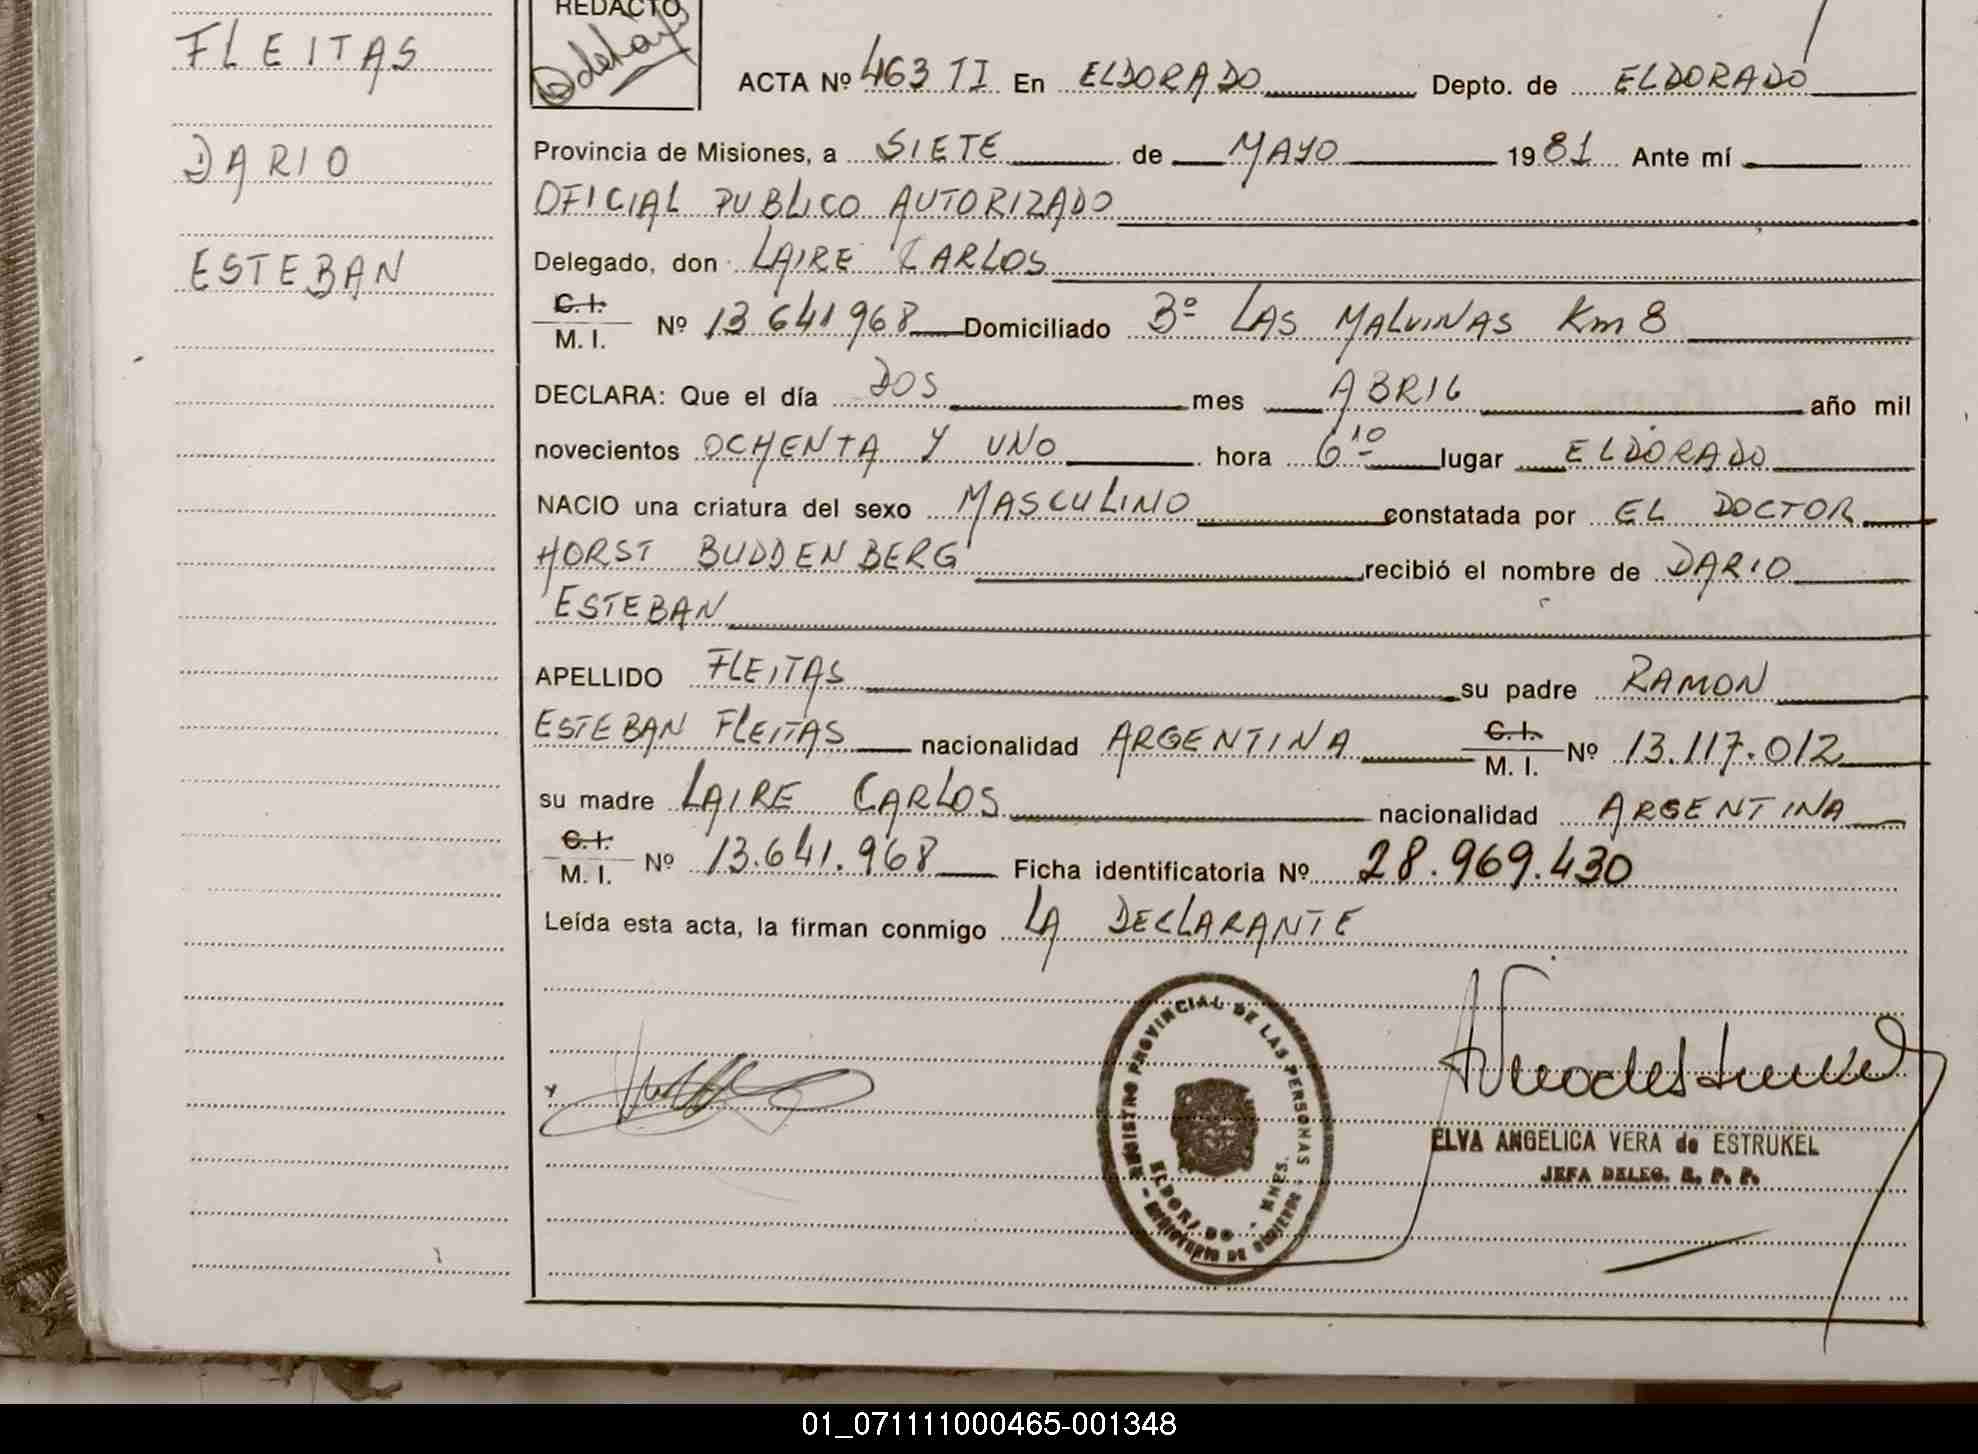 FLEITAS
DARIO
ESTEBAN
REDACTO
ACTA Nº 463 TI En ELDORADO Depto. de ELDORADO
Provincia de Misiones, a SIETE de MAYO 1981 Ante mí
OFICIAL PUBLICO AUTORIZADO
Delegado, don LAIRE CARLOS
C.I.
M. I. Nº 13 641 968 Domiciliado Bº LAS MALVINAS Km 8
DECLARA: Que el día DOS mes ABRIL año mil
novecientos OCHENTA Y UNO hora 6 10 lugar ELDORADO
NACIO una criatura del sexo MASCULINO constatada por EL DOCTOR
HORST BUDDENBERG recibió el nombre de DARIO
ESTEBAN
APELLIDO FLEITAS su padre RAMON
ESTEBAN FLEITAS nacionalidad ARGENTINA C.I. M. I. Nº 13.117.012
su madre LAIRE CARLOS nacionalidad ARGENTINA
C.I.
M. I. Nº 13.641.968 Ficha identificatoria Nº 28.969.430
Leída esta acta, la firman conmigo LA DECLARANTE
REGISTRO PROVINCIAL DE LAS PERSONAS
ELDORADO - MNES.
MINISTERIO DE GOBIERNO
ELVA ANGELICA VERA de ESTRUKEL
JEFA DELEG. R. P. P.
01_071111000465-001348